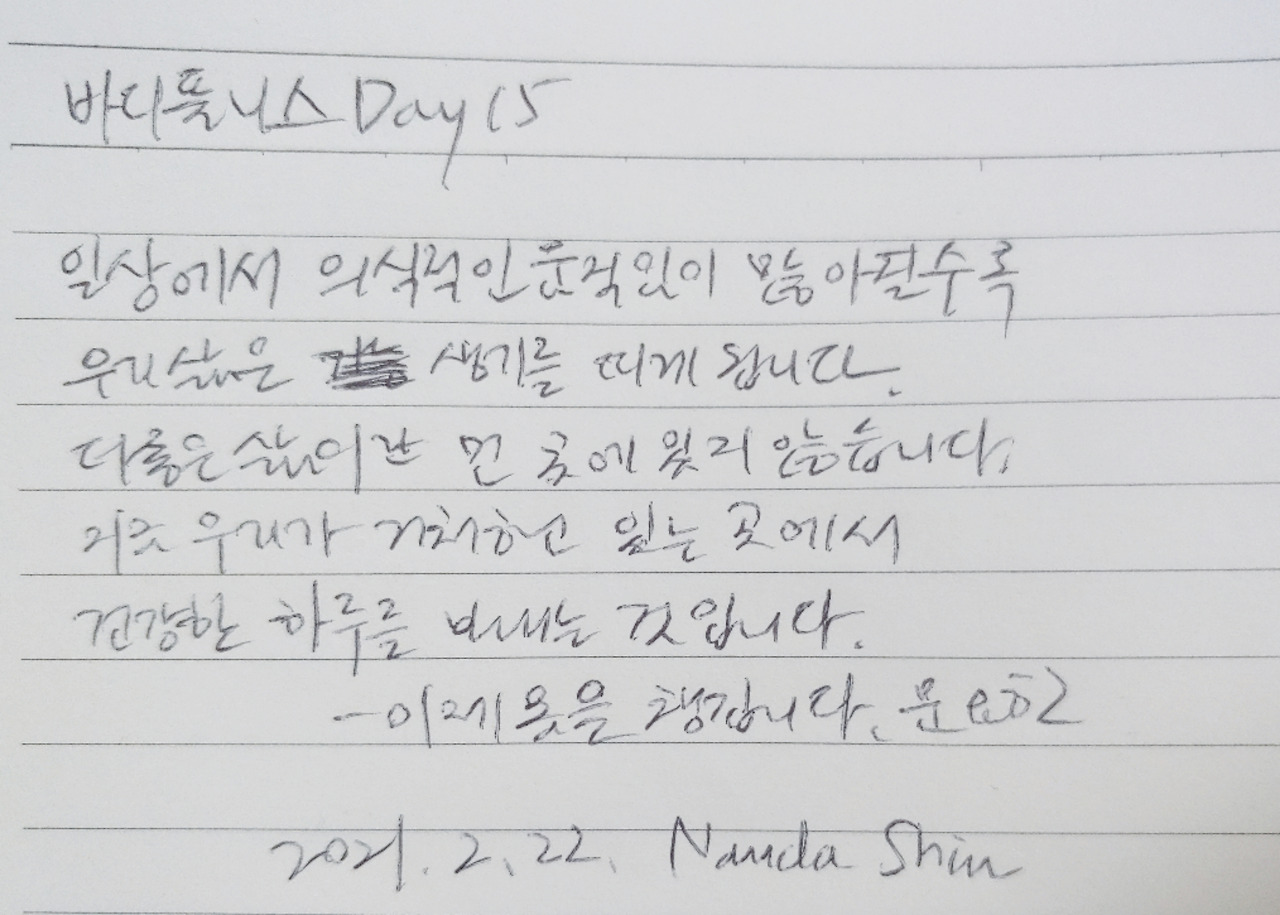 바디풀니스 Day 15
일상에서 의식적인 움직임이 많아질수록
우리 삶은 생기를 띠게 됩니다.
다른 삶이란 먼 곳에 있지 않습니다.
지금 우리가 거처하고 있는 곳에서
건강한 하루를 보내는 것입니다.
-이제 몸을 챙깁니다. 문요한
2021. 2. 22. Nanda Shin